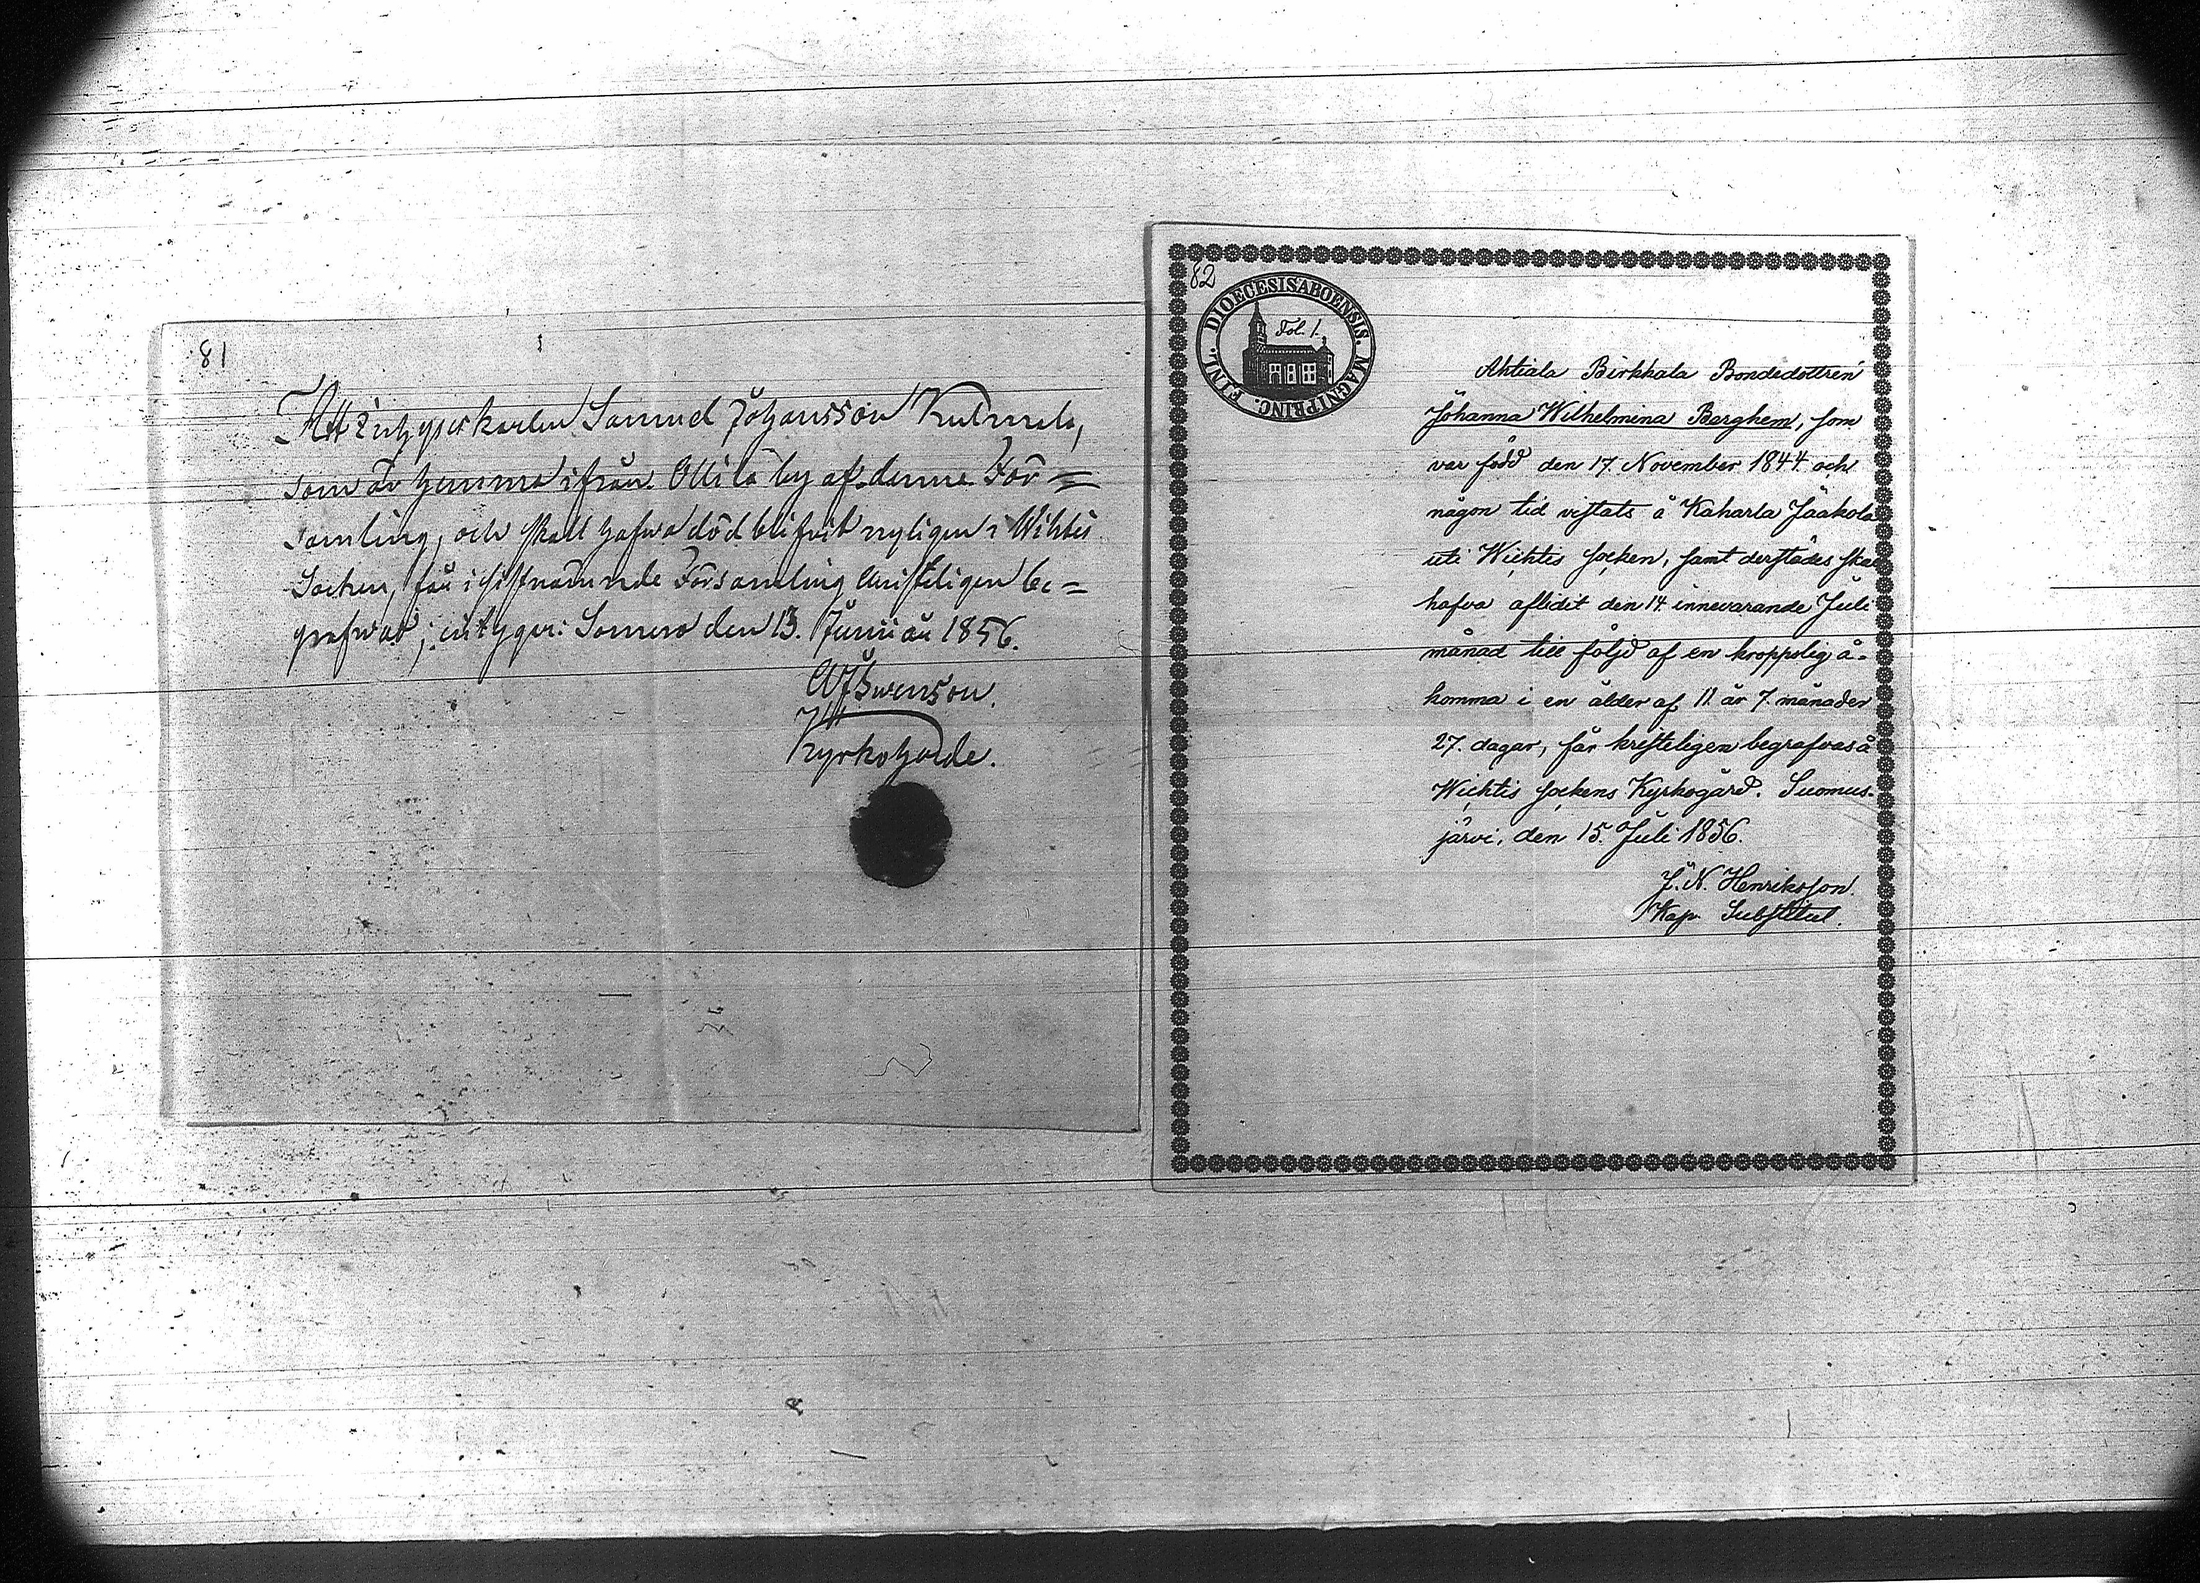 81
Att Inhyseskarlen Samuel Johansson Kulmala,
som är hemma ifrån Ollila by af denne För=
samling, och skall hafwa död blifvit nyligen i Wihtis
Socken, får i sistnämnde Församling christeligen be=
grafwas; intygar: Somero den 13. Junii år 1856.
Swenson.
Kyrkoherde.
82
DIOECESIS ABOENSIS. MAGNI PRINC. FINL.
Fol. 1.
Ahtiala Birkkala Bondedottren
Johanna Wilhelmina Berghem, som
var född den 17. November 1844 och
någon tid vistats å Kaharla Jaakola
uti Wichtis socken, samt derstädes skall
hafva aflidit den 14 innevarande Juli
månad till följd af en kroppslig å-
komma i en ålder af 11 år 7 månader
27. dagar, får kristeligen begrafvas å
Wichtis sockens Kyrkogård. Suomus-
järvi, den 15. Juli 1856.
J. N. Henriksson.
Kap. Substitut.